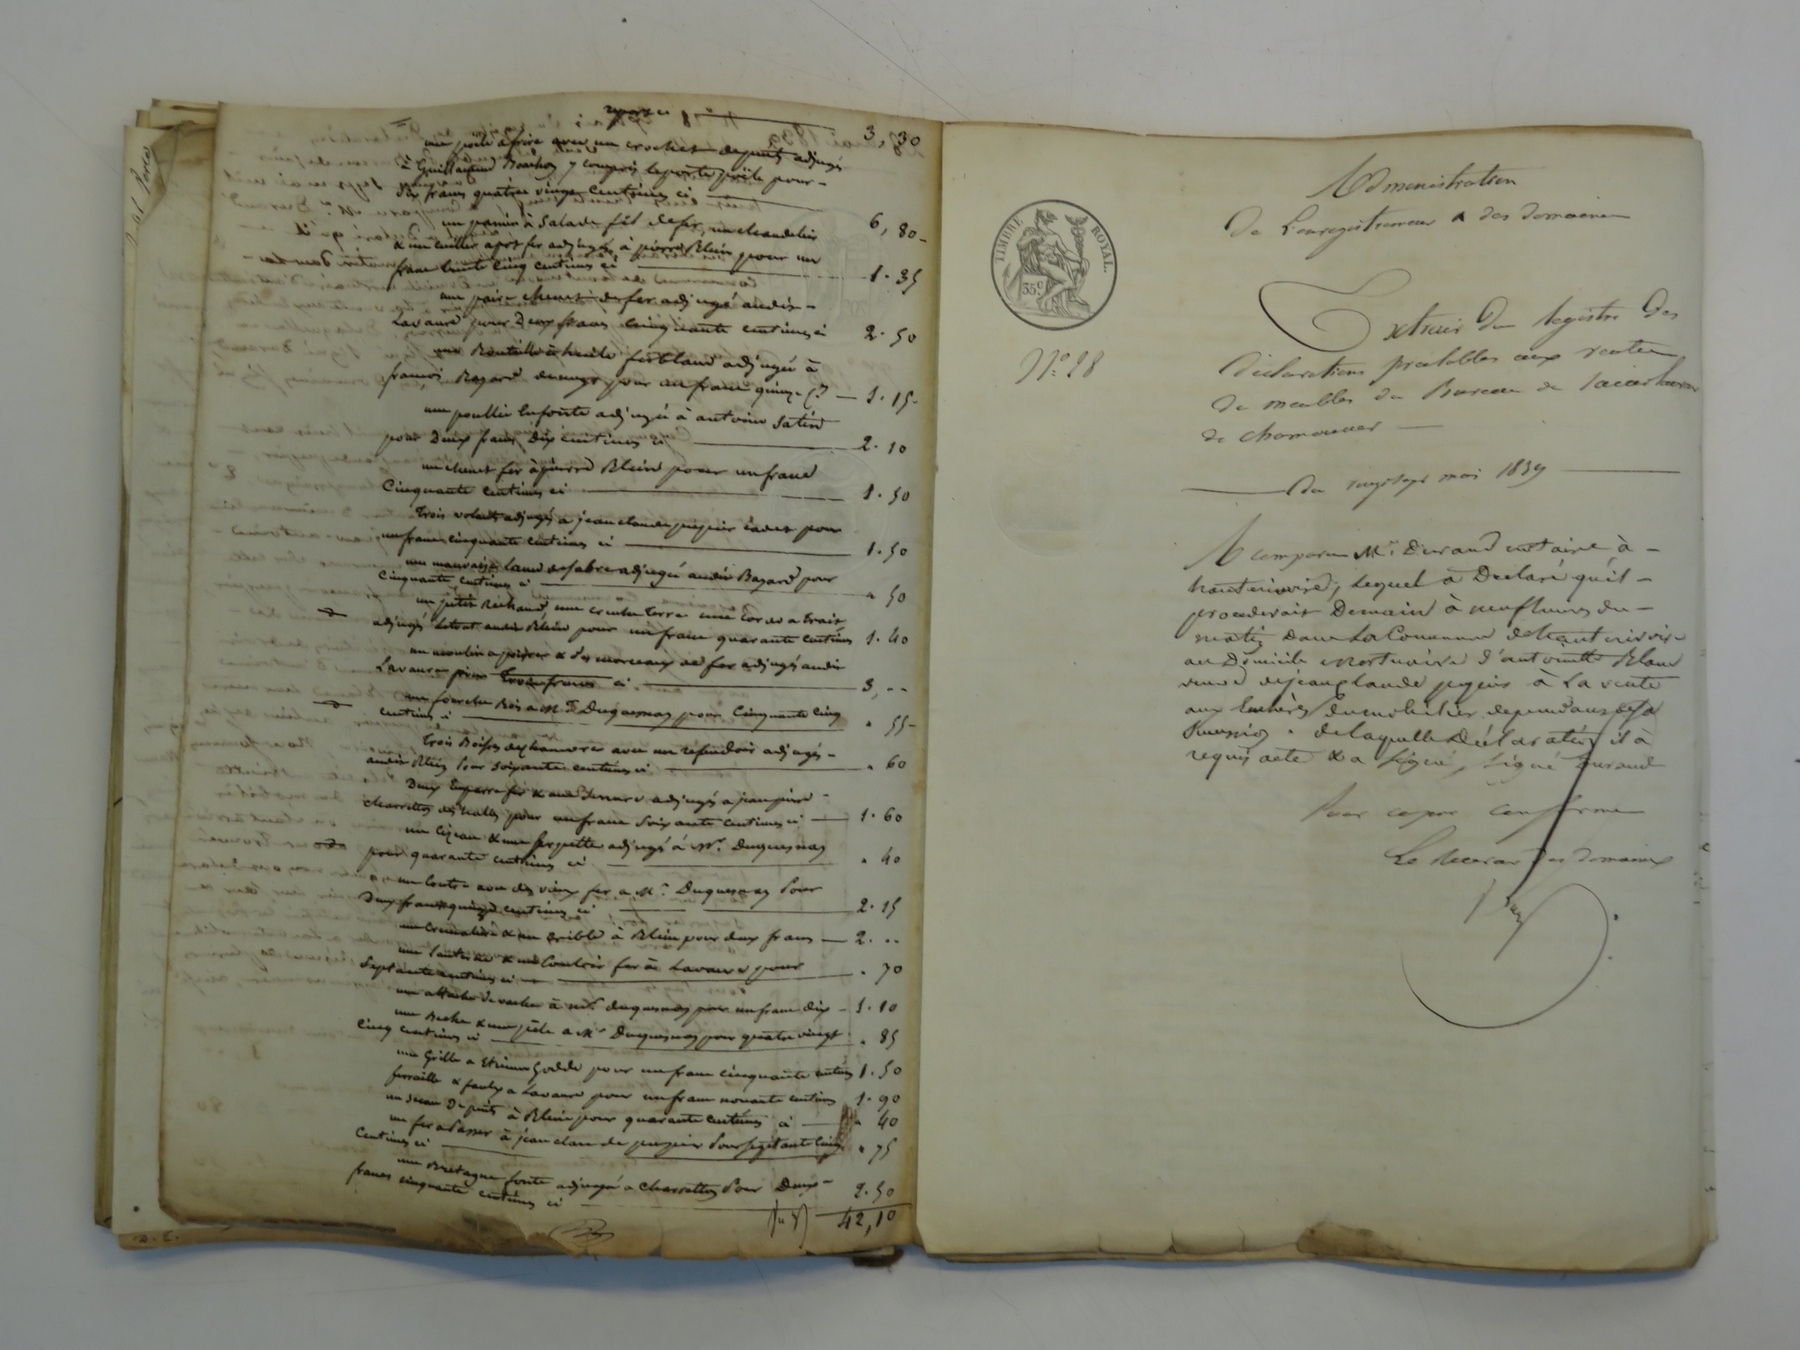 3, 30
une poële à frire avec un crochet depuits adjugé
à Guillaume Bouchon y compris le porte poële pour -
six francs quatre vingt centimes ci 6, 80 -
un panier à Salade fil de fer, un chandelier
& un cuiller à pot fer adjugés à pierre Blein pour un
franc trente cinq centimes ci 1 . 35
une paire chenet de fer adjugé audit -
Lavaure pour Deux francs cinquante centimes ci 2 . 50
une Bouteille à huile ferblanc adjugée à
françois Bayard pour un franc quinze c.es 1 . 15 -
une poullie en fonte adjugée à antoine
pour Deux francs Dix centimes ci 2 . 10
un chenet fer à pierre Blein pour un franc
Cinquante centimes ci 1 . 50
trois volants adjugés a jean claude cadet pour
un franc cinquante centimes ci 1 . 50
une mauvaise lame de sabre adjugée audit Bayard pour
Cinquante centimes ci " 50
un petit Réchaud, une cruche terre une Corde a trait
adjugés le tout audit Blein pour un franc quarante centimes 1 . 40
un moulin a poivre & des morceaux de fer adjugés audit
Lavaure prix trois francs ci 3, --
une fourche Bois a M. Duquesnay pour Cinquante Cinq
centimes ci " 55 -
trois Boises de chanvre avec un adjugés -
audit Blein Pour Soixante centimes ci " 60
Deux fer & une adjugés a jean pierre -
Charretton pour un franc Soixante centimes ci 1 . 60
un Cizeau & une serpette adjugé à M.r Duquesnay
pour quarante centimes ci " 40
un avec des vieux fer a M.r Duquesnay Pour
Deux francs quinze centimes ci 2 . 15
une Cremaliere & un crible à Blein pour deux francs 2 . --
une & un Couloir fer à Lavaure pour
Septante centimes ci " 70
une attache de vache à M.r Duquesnay pour un franc dix - 1 . 10
une Beche & une pèle a M.r Duquesnay pour quatre vingt
Cinq centimes ci " 85
une Grille a Etienne pour un franc cinquante centimes 1 . 50
ferraille & a Lavaure pour un franc nonante centimes 1 . 90
un Seau De puits à Blein pour quarante centimes ci " 40
un fer a Passer à jean claude Pour Septante Cinq
Centimes ci " 75
une Bretagne fonte adjugée a Charretton Pour Deux -
francs cinquante centimes ci 2 . 50
42, 10
TIMBRE ROYAL.
35c
N.o 28
Administration
De L'enregistrement & des domaines
Extrait Du Registre Des
Déclarations préalables aux ventes
De meubles du Bureau de
de chamousset
Du vingt sept mai 1839
A comparu M.r Durand notaire à -
hauterivoire, lequel à Declaré qu'il -
procederait Demain à neuf heures du -
matin dans La Commune de hauterivoire
au Domicile mortuaire d'antoinette Blanc
veuve de jean claude à La vente
aux Enchères du mobilier dependant de sa
Succession . de laquelle Déclaration il à
requis acte & a Signé, Signé Durand
Pour copie conforme
Le Receveur des domaines